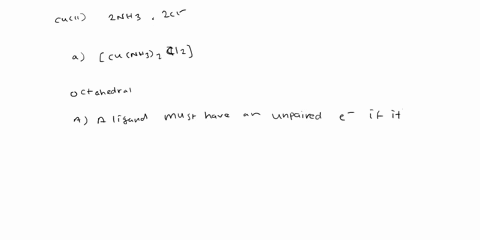 Cu(II) 2NH3, 2Cl-
a) [Cu(NH3)2Cl2]
octahedral
A) A ligand must have an unpaired e- if it